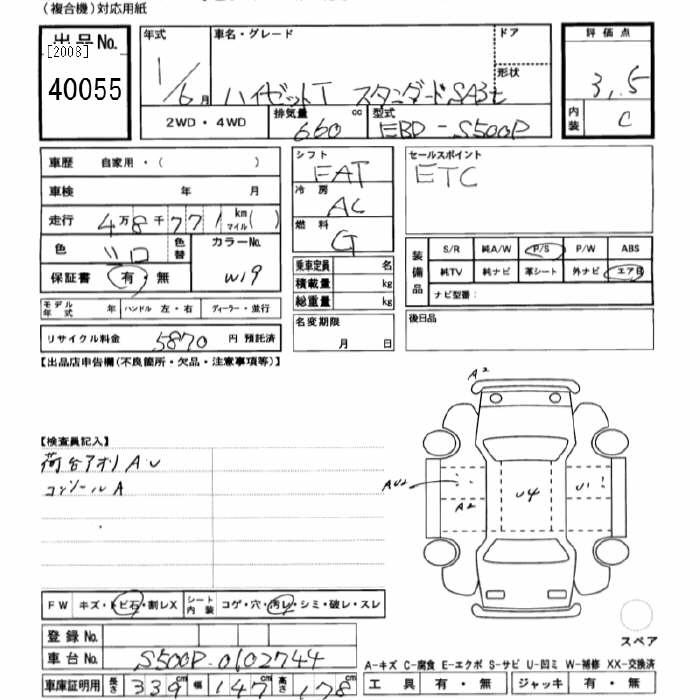 (複合機)対応用紙
出品No.
[2008]
40055
年式
1/6月
車名・グレード
ハイゼットT スタンダードSA3t
ドア
形状
2WD・4WD
排気量 660 cc
型式 EBD-S500P
評価点
3.5
内装 C
車歴 自家用・( )
車検 年 月
走行 4万8千771 km マイル( )
色 シロ 色替
カラーNo. W19
保証書 有・無
モデル年式 年 ハンドル 左・右 ディーラー・並行
リサイクル料金 5870 円 預託済
シフト FAT
冷房 AC
燃料 G
乗車定員 名
積載量 kg
総重量 kg
名変期限
月 日
セールスポイント
ETC
装備品
S/R 純A/W P/S P/W ABS
純TV 純ナビ 革シート 外ナビ エアB
ナビ型番:
後日品
【出品店申告欄(不良箇所・欠品・注意事項等)】
【検査員記入】
荷台アオリAU
コンソールA
A2
AU2
A2
U4
U1
FW キズ・トビ石・割レX
シート内装 コゲ・穴・汚レ・シミ・破レ・スレ
登録No.
車台No. S500P-0102744
車庫証明用 長さ 339cm 幅 147cm 高さ 178cm
スペア
A-キズ C-腐食 E-エクボ S-サビ U-凹ミ W-補修 XX-交換済
工具 有・無 ジャッキ 有・無